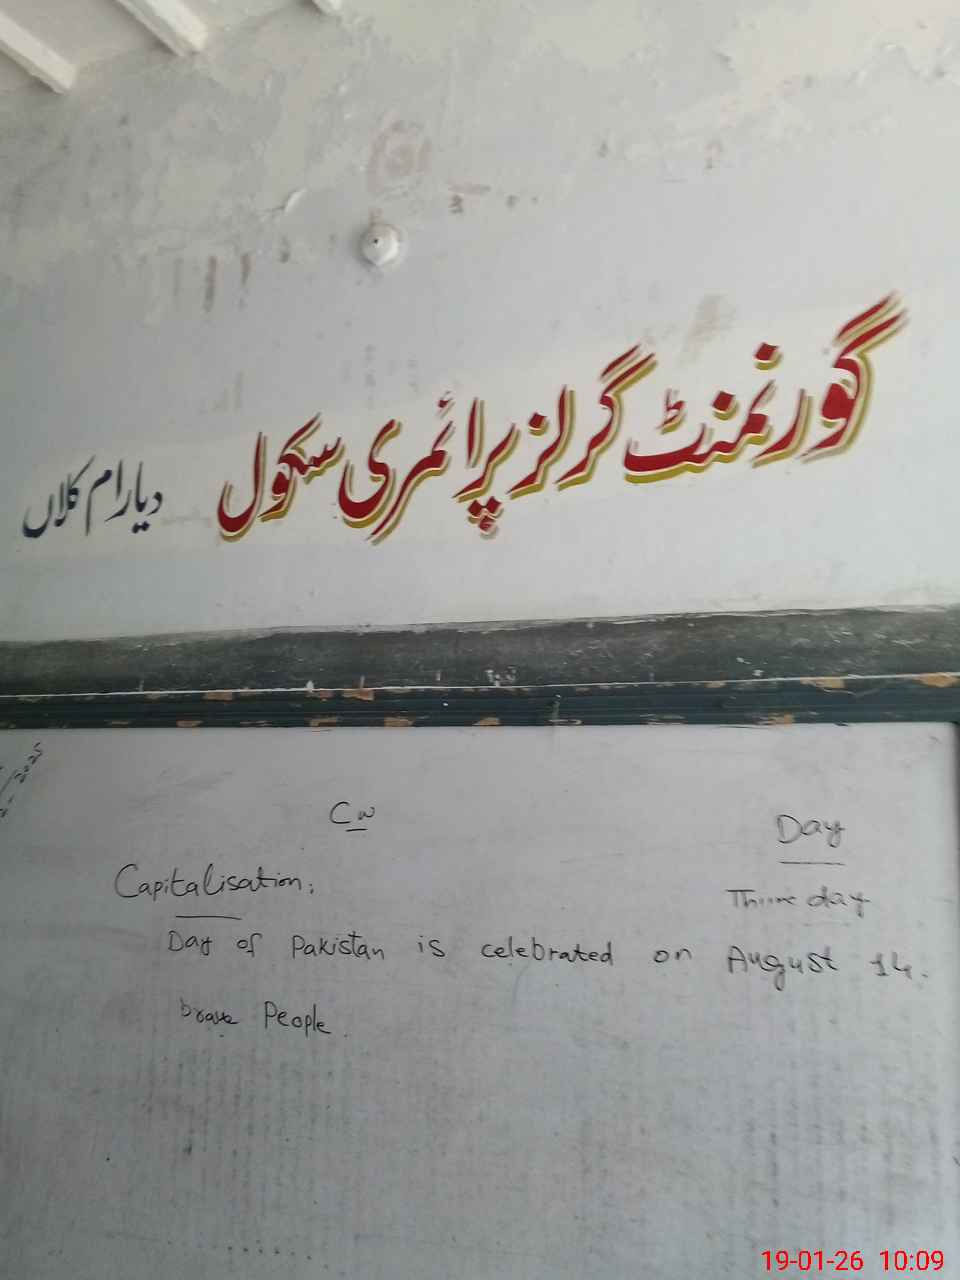 گورنمنٹ گرلز پرائمری سکول دیارام کلاں
Cw
Day
Capitalisation:
Day of Pakistan is celebrated on August 14.
brave People.
19-01-26 10:09